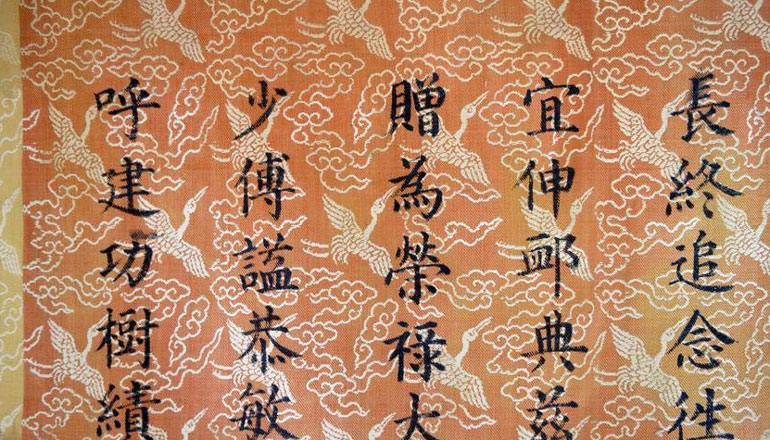 長終追念徃
宜伸䘏典茲
贈為榮祿大
少傅謚恭敏
呼建功樹績